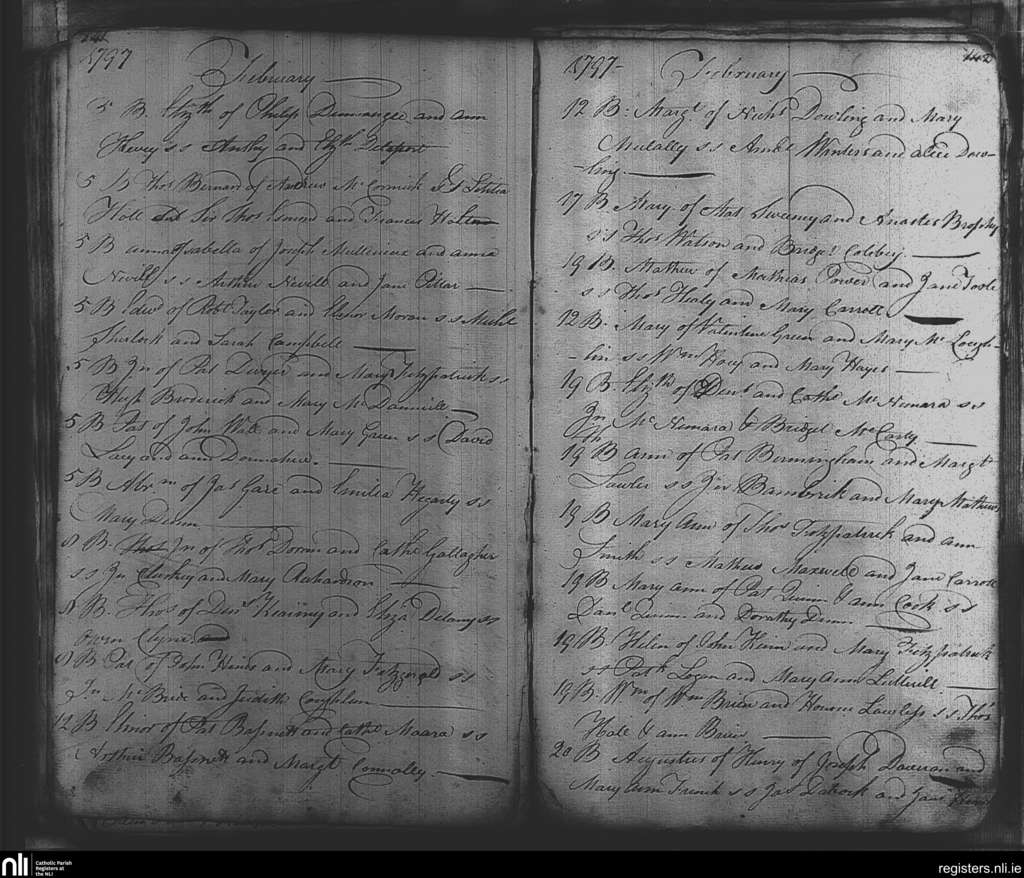 1797
February
5 B. Elizth of Philip Dumvaugee and ann
Hevey ss Anthy and Elizth Delaport
5 B Thos Bernard of Andrew McCormick &
Holt Sir Thos Esmond and Frances
5 B anna Isabella of Joseph Mullineux and anna
Nevill ss Arthur Nevill and Jane Pillar
5 B Edwd of Robt Taylor and Elenor Moran ss Michl
Sherlock and Sarah Campbell
5 B Jn of Pat Dwyer and Mary Fitzpatrick ss
Hugh Broderick and Mary McDannill
5 B Pat of John Wall and Mary Green ss David
Lacy and ann Donnahue.
5 B Abrm of Jas Gare and Emilia Hegarty ss
Mary Dunn
8 B. Jn of Thos Doran and Cathe Gallagher
ss Jn Cluskey and Mary Richardson
8 B. Thos of Denis and Eliza Delany ss
Owen Clyne
8 B Cat of John Hinds and Mary Fitzgerald ss
Jn McBride and Judith Coughlan
12 B Elinor of Pat Bassnett and Cathe Maara ss
Arthur Bassnett and Margt Connolley
142
1797 - February
12 B: Margt of Nichs Dowling and Mary
Mulally ss Winters and alice Dow-
ling.
17 B. Mary of Pat Sweeny and Anastas Brophy
ss Thos Watson and Bridgt
19 B. Mathew of Mathias Power and Jane Toole
ss Thos Healy and Mary Carroll
12 B. Mary of Valentine Green and Mary McLough-
-lin ss Wm Hoey and Mary Hayes
19 B. Elizth of Dens and Cathe McNemara ss
Jn McNemara & Bridget McCarty
19 B Ann of Pat Birmingham and Margt
Lawler ss Jn Bambrick and Mary Mathews
19 B Mary Ann of Thos Fitzpatrick and ann
Smith ss Mathew Maxwell and Jane Carroll
19 B Mary ann of Pat Quinn & ann Cook ss
Danl Quinn and Dorathy Dunn
19 B Helen of John Kenn and Mary Fitzpatrick
ss Patk Logan and Mary Ann Luttrill
19 B. Wm of Wm Brien and Honour Lawless ss Thos
Hall & ann Brien
20 B Augustus Henry of Joseph Daveran and
Mary Ann French ss Jas and Jane
nli
Catholic Parish
Registers at
the NLI
registers.nli.ie